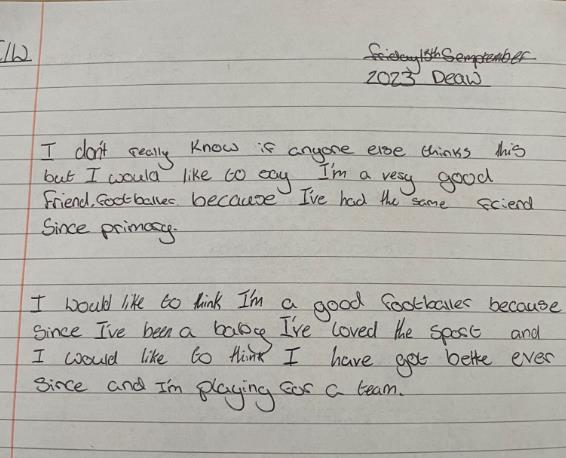 C/W
Friday 15th Semptember
2023 Deaw
I don't really know if anyone else thinks this
but I would like to say I'm a very good
friend, footballer because I've had the same friend
Since primary.
I would like to think I'm a good footballer because
Since I've been a baby I've loved the sport and
I would like to think I have got bette ever
Since and I'm playing for a team.